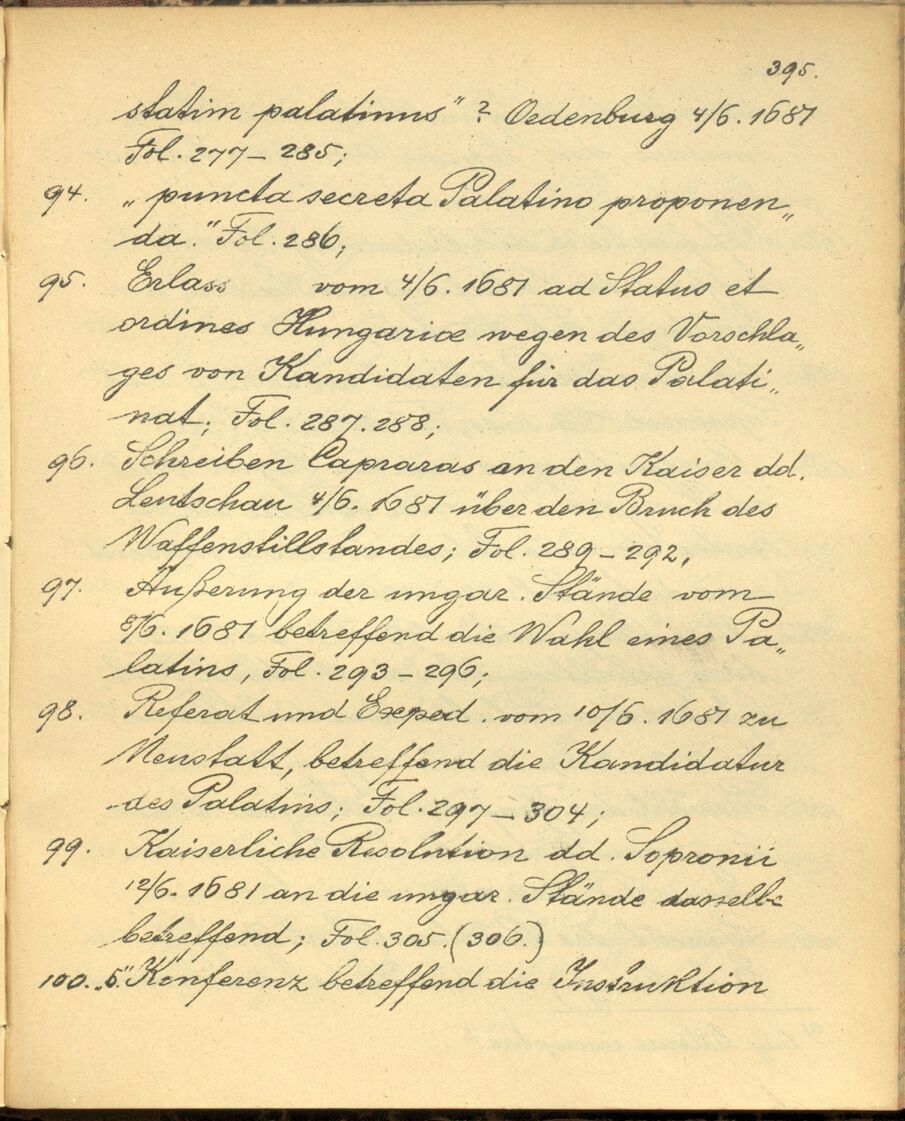 395.
statim palatinus" ? Oedenburg 4/6. 1681
Fol. 277 – 285;
94. „puncta secreta Palatino proponen„
da." Fol. 286;
95. Erlass vom 4/6. 1681 ad Status et
ordines Hungariæ wegen des Vorschla„
ges von Kandidaten für das Palati„
nat; Fol. 287. 288;
96. Schreiben Capraras an den Kaiser dd.
Leutschau 4/6. 1681 über den Bruch des
Waffenstillstandes; Fol. 289 – 292,
97. Äußerung der ungar. Stände vom
8/6. 1681 betreffend die Wahl eines Pa„
latins, Fol. 293 – 296;
98. Referat und Exped. vom 10/6. 1681 zu
Neustatt, betreffend die Kandidatur
des Palatins; Fol. 297 – 304;
99. Kaiserliche Resolution dd. Sopronii
12/6. 1681 an die ungar. Stände dasselbe
betreffend; Fol. 305. (306.)
100. „5." Konferenz betreffend die Instruktion